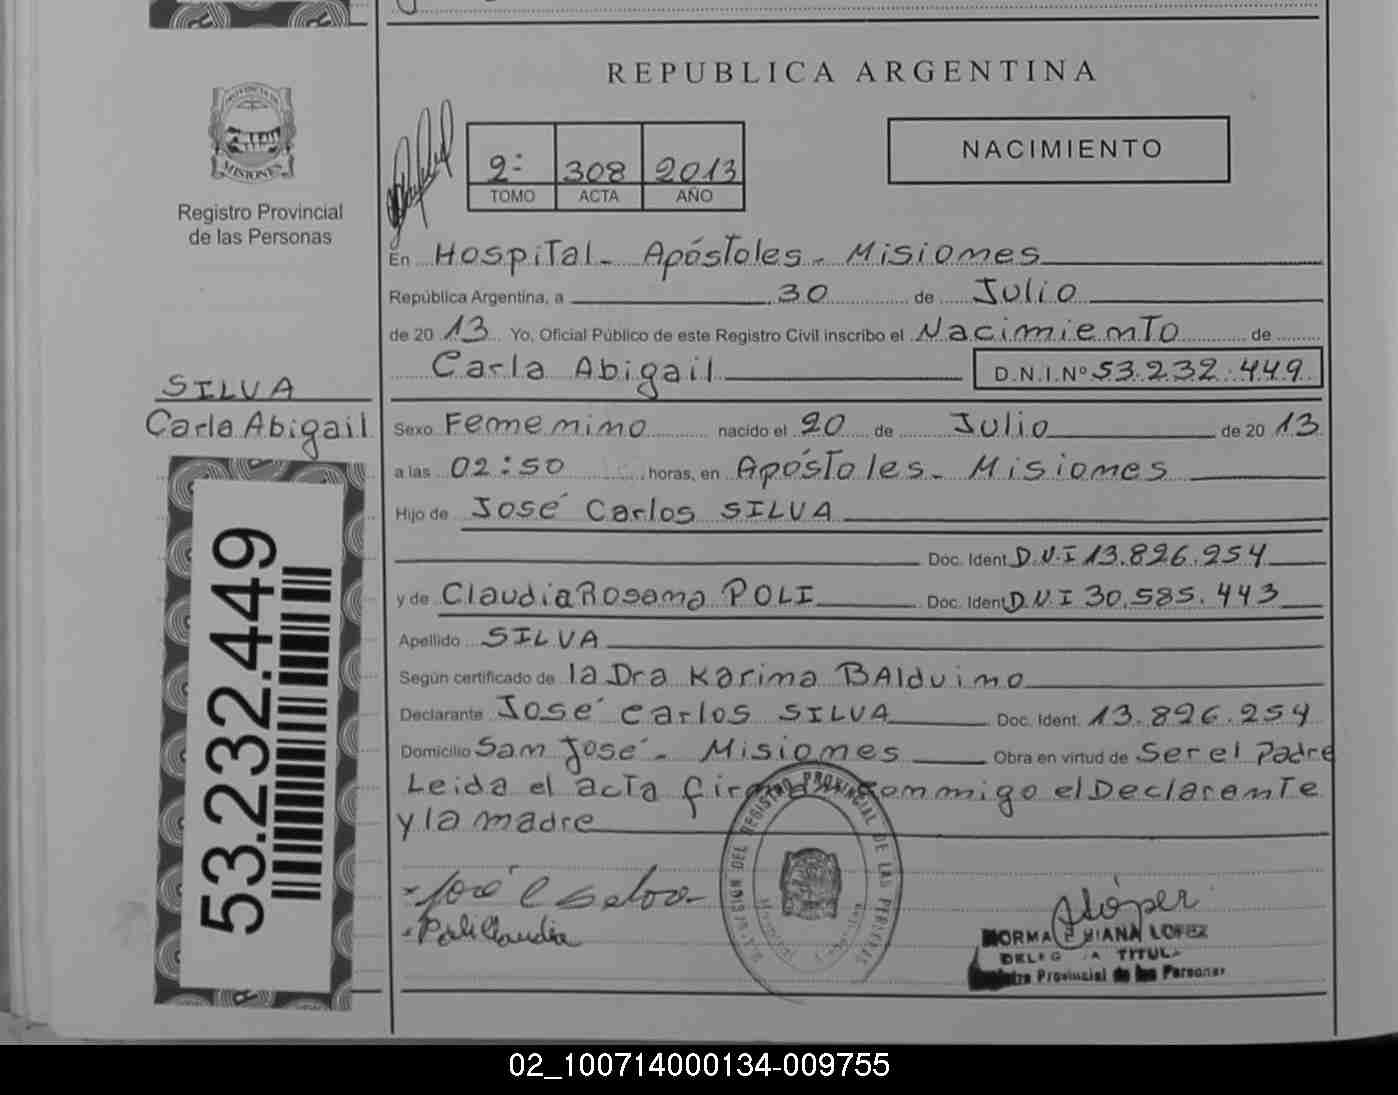 REPUBLICA ARGENTINA
PROVINCIA DE
MISIONES
Registro Provincial
de las Personas
2º 308 2013
TOMO ACTA AÑO
NACIMIENTO
En Hospital - Apóstoles - Misiones
República Argentina, a 30 de Julio
de 2013 Yo, Oficial Público de este Registro Civil inscribo el Nacimiento de
Carla Abigail D.N.I.Nº 53.232.449
SILVA
Carla Abigail
Sexo Femenino nacido el 20 de Julio de 2013
a las 02:50 horas, en Apóstoles - Misiones
Hijo de José Carlos SILVA
Doc. Ident D.N.I 13.826.254
y de Claudia Rosana POLI Doc. Ident D.N.I 30.585.443
Apellido SILVA
Según certificado de la Dra Karina BAlduino
Declarante José Carlos SILVA Doc. Ident. 13.826.254
Domicilio San José - Misiones Obra en virtud de Ser el Padre
Leida el acta firman conmigo el Declarante
y la madre
53.232.449
José C Silva
Poli Claudia
DEL REGISTRO PROVINCIAL DE LAS PERSONAS
ALópez
NORMA LOPEZ
TITULAR
Provincial de las Personas
02_100714000134-009755